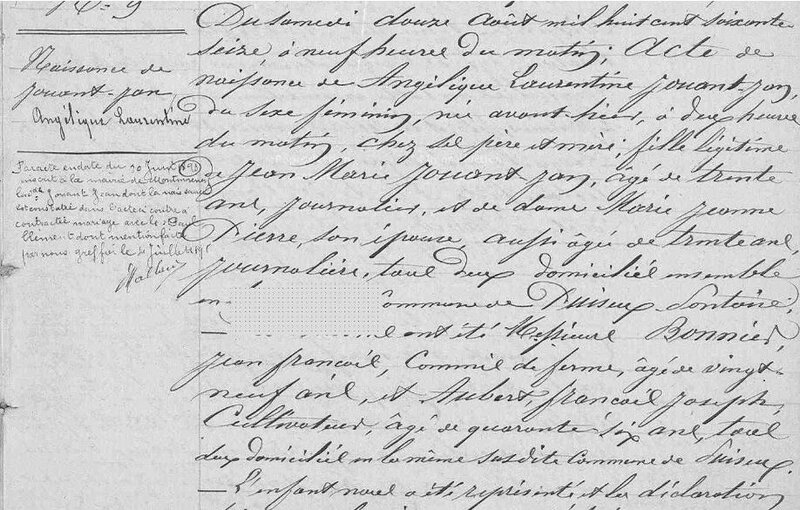 N° 9
Naissance de
Jouant-Jan
Angélique Laurentine
Par acte en date du 30 Juin 1898
inscrit à la mairie de
Jouant Jean dont la naissance
est constatée dans l'acte ci contre a
contracté mariage avec le
Clément dont mention faite
par nous greffier le Juillet
Du samedi douze Août mil huit cent soixante
seize à neuf heures du matin; Acte de
naissance de Angélique Laurentine Jouant-Jan,
du sexe féminin, née avant-hier, à deux heures
du matin, chez ses père et mère; fille légitime
de Jean Marie Jouant Jan, âgé de trente
ans, journalier, et de dame Marie Jeanne
Pierre, son épouse, aussi âgée de trente ans,
journalière, tous deux domiciliés ensemble
en commune de Puiseux Pontoise;
— ont été Messieurs Bonnier,
Jean François, Commis de ferme, âgé de vingt-
neuf ans, et Aubert François Joseph,
Cultivateur, âgé de quarante six ans, tous
deux domiciliés en la même susdite Commune de Puiseux.
— L'enfant nous a été représenté et les déclaration